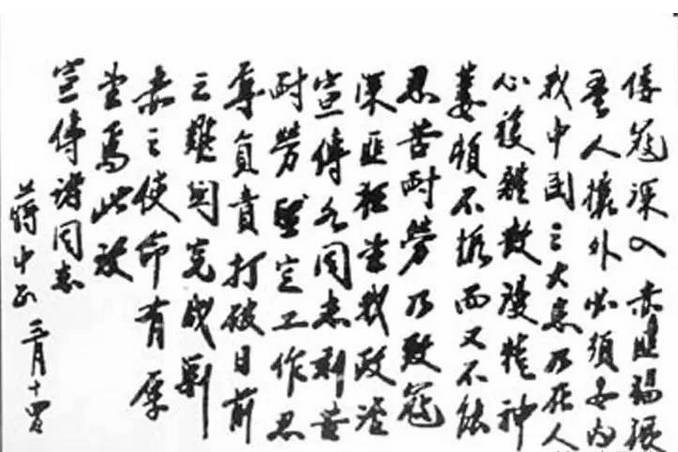 倭寇深入赤匪張
吾人攘外必須安內
我中國之大患乃在人
心複雜散漫精神
萎頓不振而又不能
忍苦耐勞乃致寇
深匪望我政治
宣傳各同志刻苦
耐勞堅定工作忍
辱負責打破目前
之難關完成剿
赤之使命有厚
望焉此致
宣傳諸同志
蔣中正 三月十四日